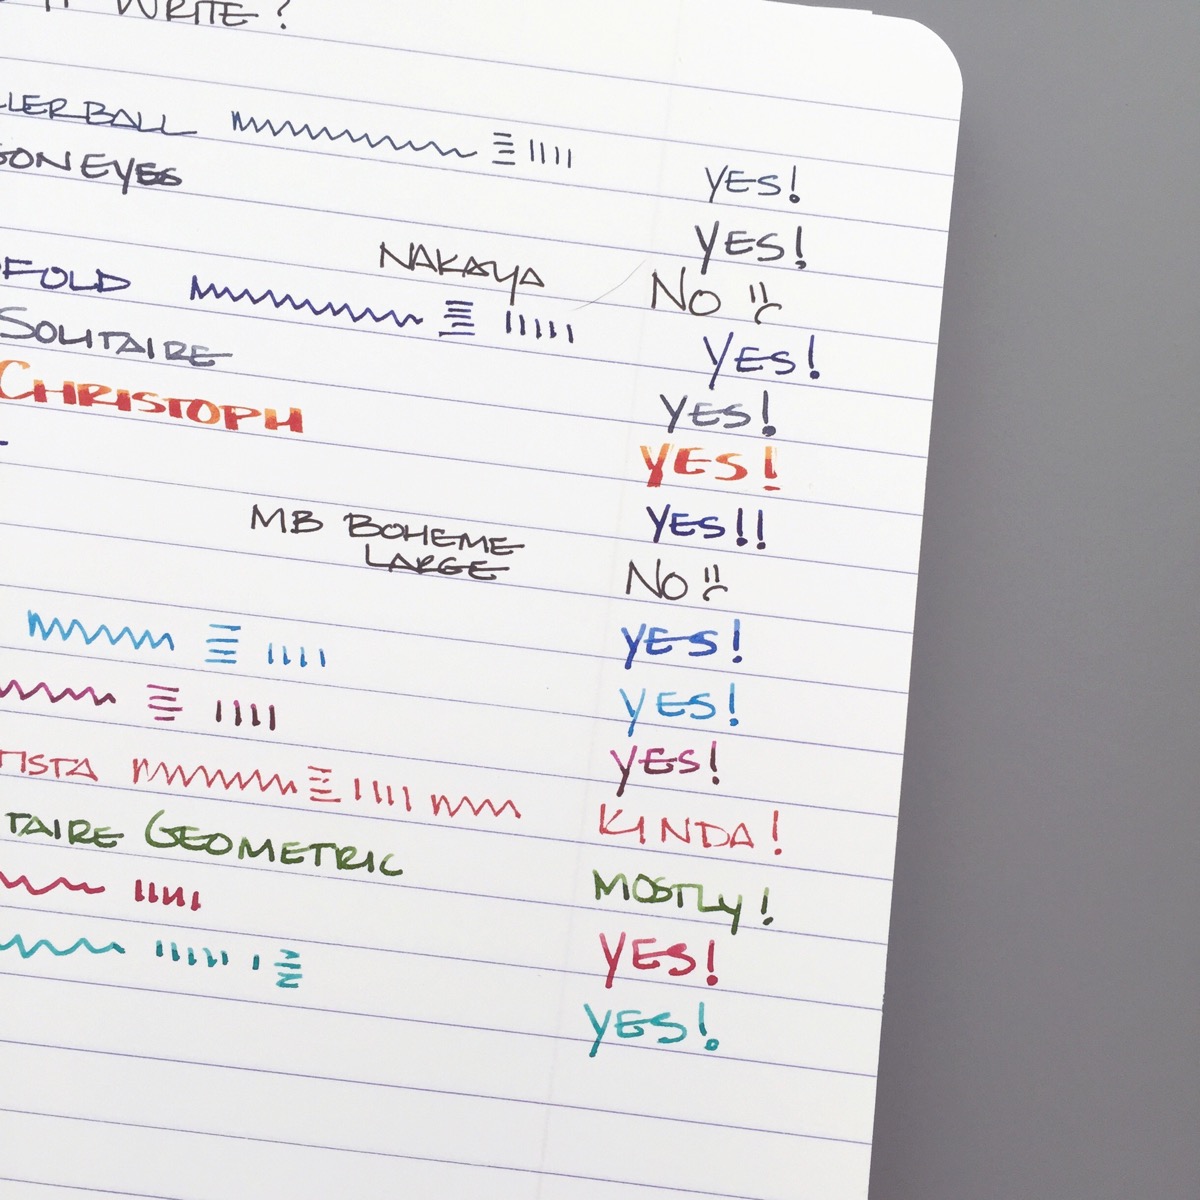 WRITE?
LLERBALL YES!
GON EYES YES!
NAKAYA NO
FOLD YES!
SOLITAIRE YES!
CHRISTOPH YES!
YES!!
MB BOHEME LARGE NO
YES!
YES!
YES!
TISTA KINDA!
TAIRE GEOMETRIC MOSTLY!
YES!
YES!